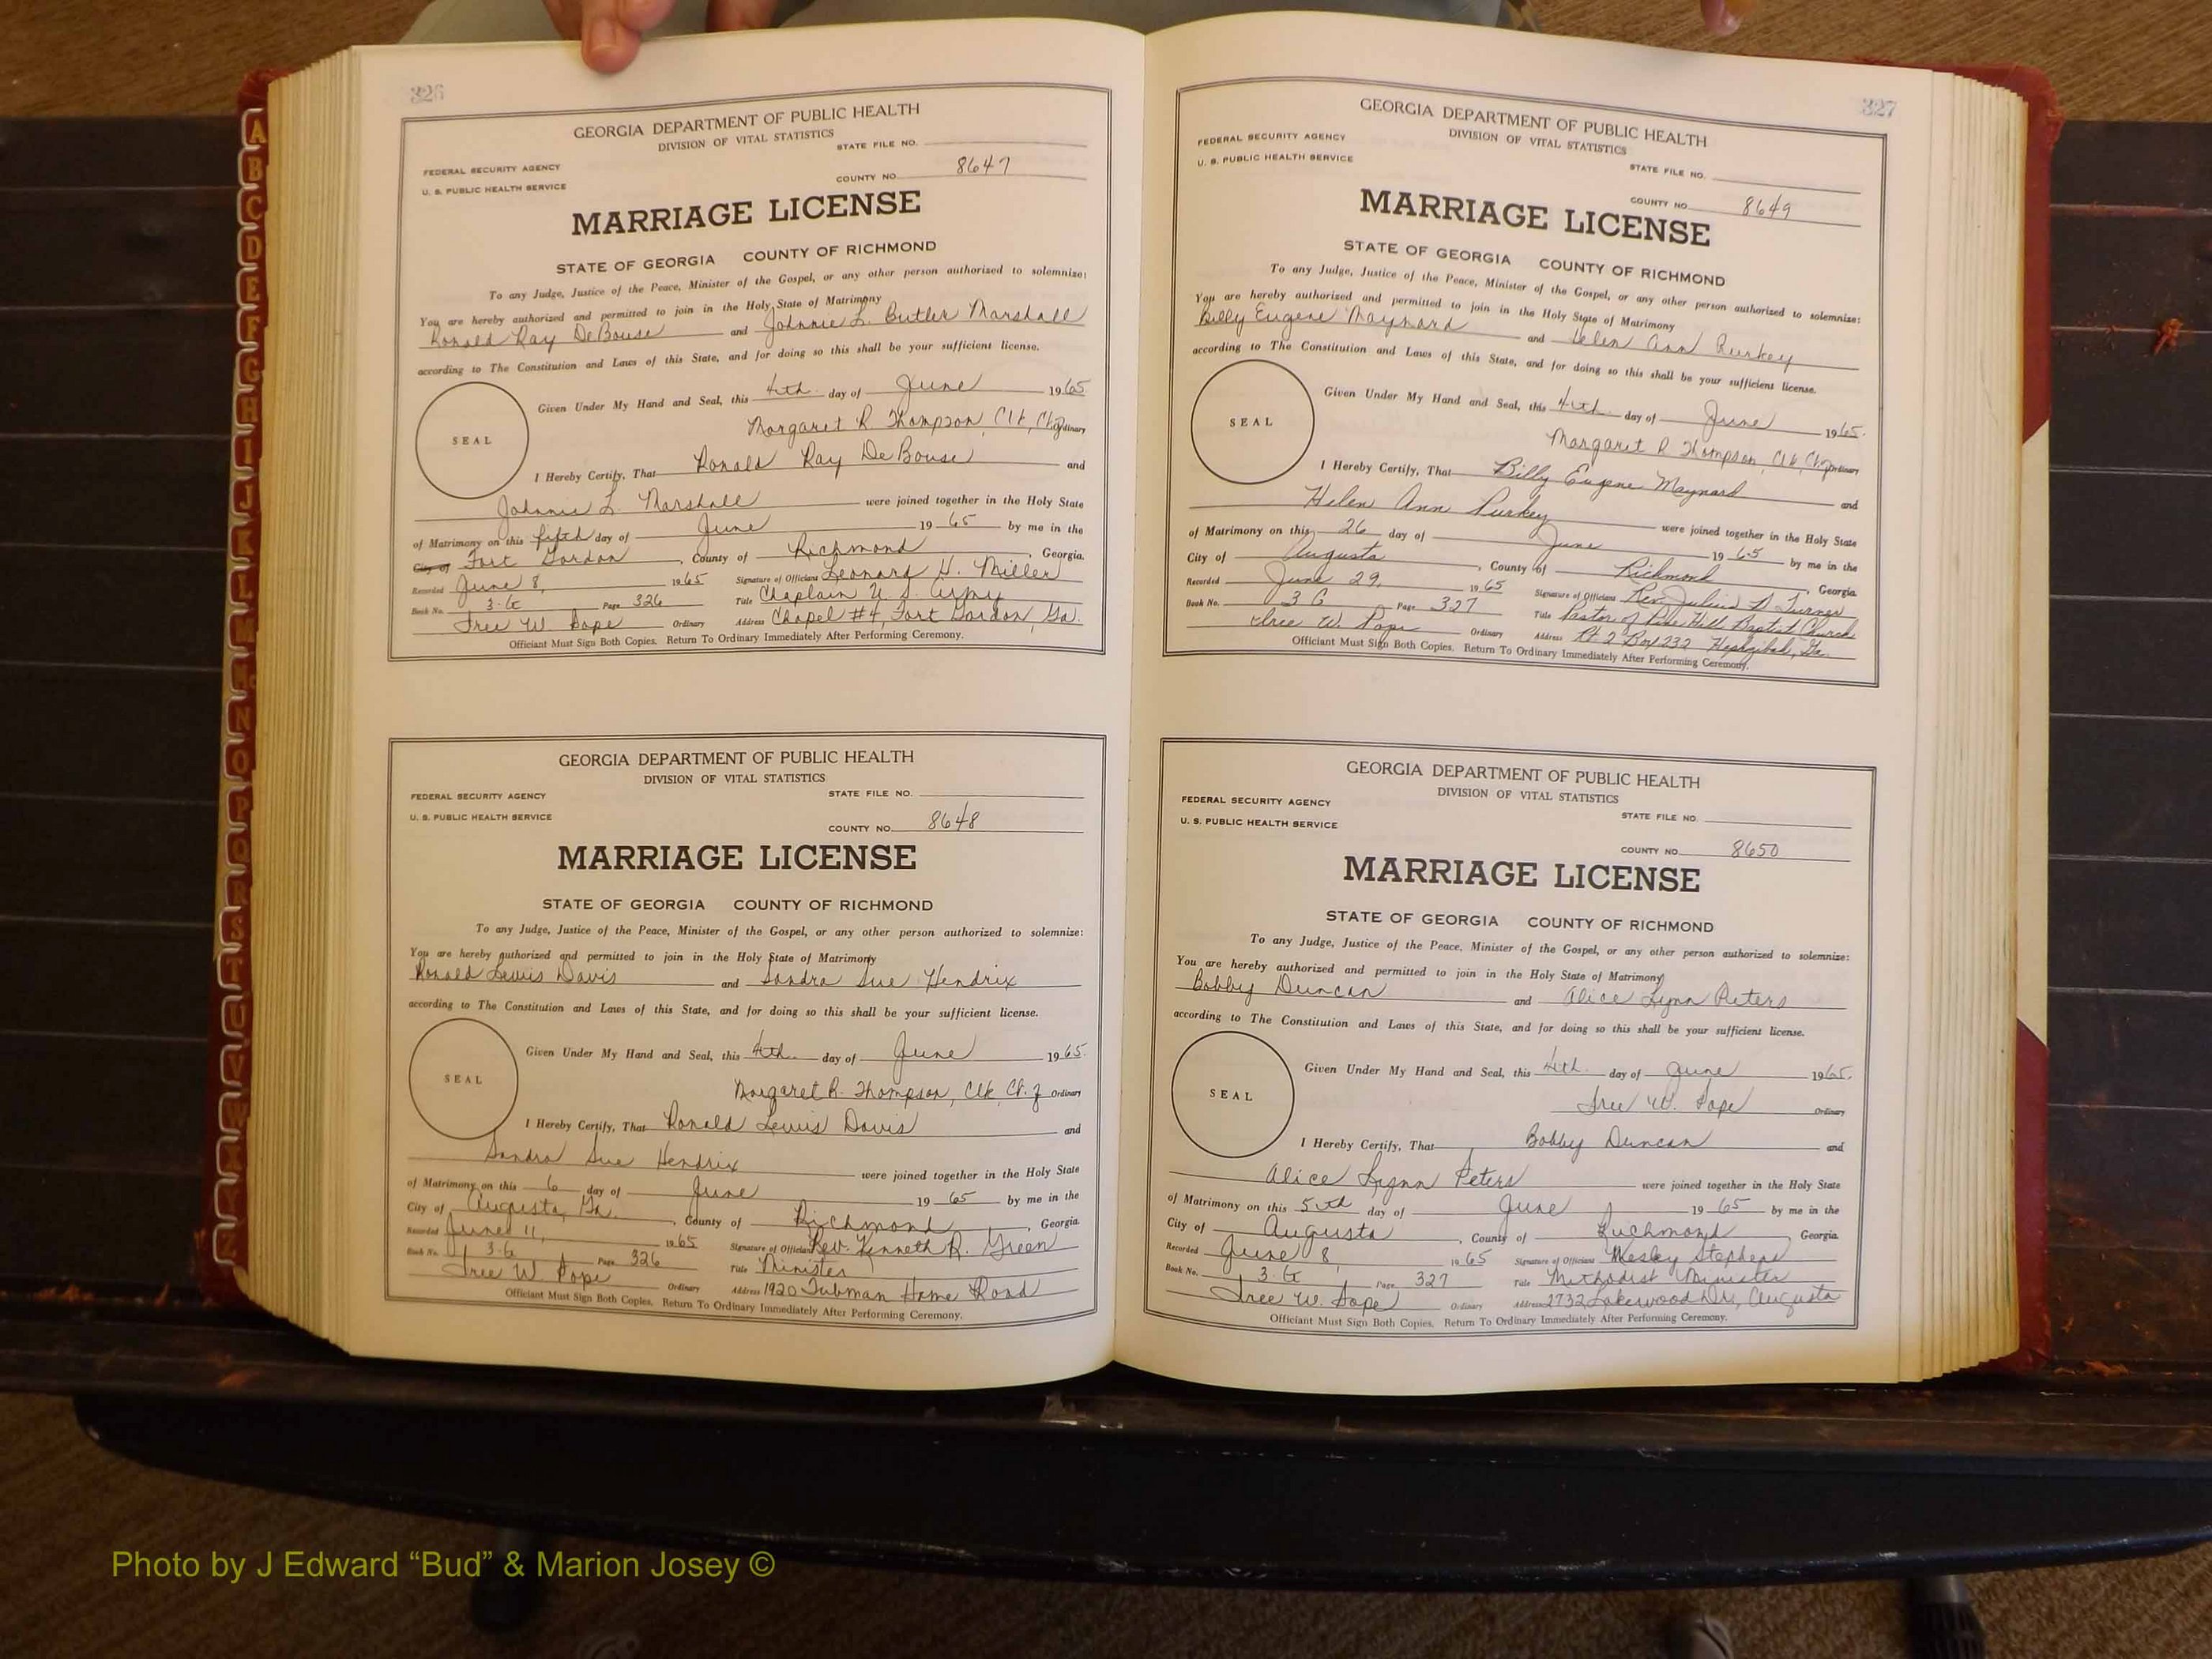 326
GEORGIA DEPARTMENT OF PUBLIC HEALTH
DIVISION OF VITAL STATISTICS
STATE FILE NO.
FEDERAL SECURITY AGENCY
U. S. PUBLIC HEALTH SERVICE
COUNTY NO. 8647
MARRIAGE LICENSE
STATE OF GEORGIA COUNTY OF RICHMOND
To any Judge, Justice of the Peace, Minister of the Gospel, or any other person authorized to solemnize:
You are hereby authorized and permitted to join in the Holy State of Matrimony
Ronald Ray DeBouse and Johnnie L. Butler Marshall
according to The Constitution and Laws of this State, and for doing so this shall be your sufficient license.
SEAL
Given Under My Hand and Seal, this 4th day of June 1965
Margaret R. Thompson, Clk, Ct. of Ordinary
I Hereby Certify, That Ronald Ray DeBouse and
Johnnie L. Marshall were joined together in the Holy State
of Matrimony on this fifth day of June 19 65 by me in the
City of Fort Gordon, County of Richmond, Georgia.
Recorded June 8, 1965 Signature of Officiant Leonard H. Miller
Book No. 3-G Page 326 Title Chaplain U. S. Army
Iree W. Pope Ordinary Address Chapel #4, Fort Gordon, Ga.
Officiant Must Sign Both Copies. Return To Ordinary Immediately After Performing Ceremony.
GEORGIA DEPARTMENT OF PUBLIC HEALTH
DIVISION OF VITAL STATISTICS
STATE FILE NO.
FEDERAL SECURITY AGENCY
U. S. PUBLIC HEALTH SERVICE
COUNTY NO. 8648
MARRIAGE LICENSE
STATE OF GEORGIA COUNTY OF RICHMOND
To any Judge, Justice of the Peace, Minister of the Gospel, or any other person authorized to solemnize:
You are hereby authorized and permitted to join in the Holy State of Matrimony
Ronald Lewis Davis and Sandra Sue Hendrix
according to The Constitution and Laws of this State, and for doing so this shall be your sufficient license.
SEAL
Given Under My Hand and Seal, this 4th day of June 1965.
Margaret R. Thompson, Clk, Ct. of Ordinary
I Hereby Certify, That Ronald Lewis Davis and
Sandra Sue Hendrix were joined together in the Holy State
of Matrimony on this 6 day of June 19 65 by me in the
City of Augusta, Ga., County of Richmond, Georgia
Recorded June 11, 1965 Signature of Officiant Rev. Kenneth R. Green
Book No. 3-G Page 326 Title Minister
Iree W. Pope Ordinary Address 1920 Tubman Home Road
Officiant Must Sign Both Copies. Return To Ordinary Immediately After Performing Ceremony.
327
GEORGIA DEPARTMENT OF PUBLIC HEALTH
DIVISION OF VITAL STATISTICS
FEDERAL SECURITY AGENCY
U. S. PUBLIC HEALTH SERVICE
STATE FILE NO.
COUNTY NO. 8649
MARRIAGE LICENSE
STATE OF GEORGIA COUNTY OF RICHMOND
To any Judge, Justice of the Peace, Minister of the Gospel, or any other person authorized to solemnize:
You are hereby authorized and permitted to join in the Holy State of Matrimony
Billy Eugene Maynard and Helen Ann Purkey
according to The Constitution and Laws of this State, and for doing so this shall be your sufficient license.
SEAL
Given Under My Hand and Seal, this 4th day of June 1965.
Margaret R. Thompson, Clk, Ct. of Ordinary
I Hereby Certify, That Billy Eugene Maynard and
Helen Ann Purkey were joined together in the Holy State
of Matrimony on this 26 day of June 19 65 by me in the
City of Augusta, County of Richmond, Georgia
Recorded June 29, 1965 Signature of Officiant Rev. Julius D. Turner
Book No. 3 G Page 327 Title Pastor of Pine Hill Baptist Church
Iree W. Pope Ordinary Address Rt. 2 Box 232 Hephzibah, Ga.
Officiant Must Sign Both Copies. Return To Ordinary Immediately After Performing Ceremony.
GEORGIA DEPARTMENT OF PUBLIC HEALTH
DIVISION OF VITAL STATISTICS
FEDERAL SECURITY AGENCY
STATE FILE NO.
U. S. PUBLIC HEALTH SERVICE
COUNTY NO. 8650
MARRIAGE LICENSE
STATE OF GEORGIA COUNTY OF RICHMOND
To any Judge, Justice of the Peace, Minister of the Gospel, or any other person authorized to solemnize:
You are hereby authorized and permitted to join in the Holy State of Matrimony
Bobby Duncan and Alice Lynn Peters
according to The Constitution and Laws of this State, and for doing so this shall be your sufficient license.
SEAL
Given Under My Hand and Seal, this 4th day of June 1965.
Iree W. Pope Ordinary
I Hereby Certify, That Bobby Duncan and
Alice Lynn Peters were joined together in the Holy State
of Matrimony on this 5th day of June 19 65 by me in the
City of Augusta, County of Richmond, Georgia
Recorded June 8, 1965 Signature of Officiant Wesley Stephens
Book No. 3-G Page 327 Title Methodist Minister
Iree W. Pope Ordinary Address 2732 Lakewood Dr., Augusta
Officiant Must Sign Both Copies. Return To Ordinary Immediately After Performing Ceremony.
A
B
C
D
E
F
G
H
I
J
K
L
M
Mc
N
O
P
Q
R
S
T
U
V
W
X Y
Z
Photo by J Edward “Bud” & Marion Josey ©